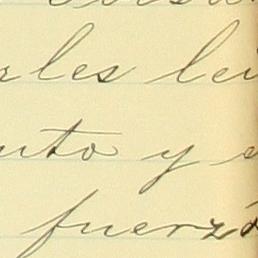 rles lei
nto y e
fuerzo